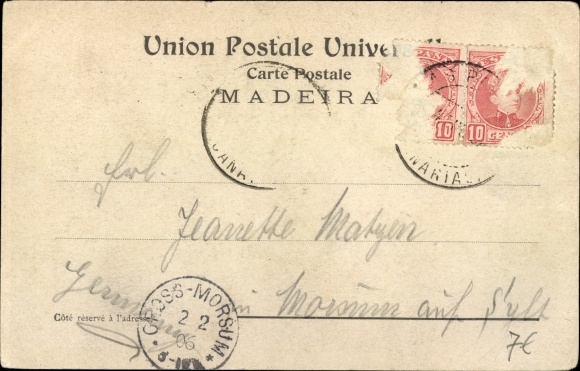 Union Postale Univer
Carte Postale
MADEIRA
10 10
CANA
NARIAS
Frl.
Jeanette Matzen
Germany
in Morsum auf Sylt
Côté réservé à l'adresse
GROSS-MORSUM
2 2
06
7€